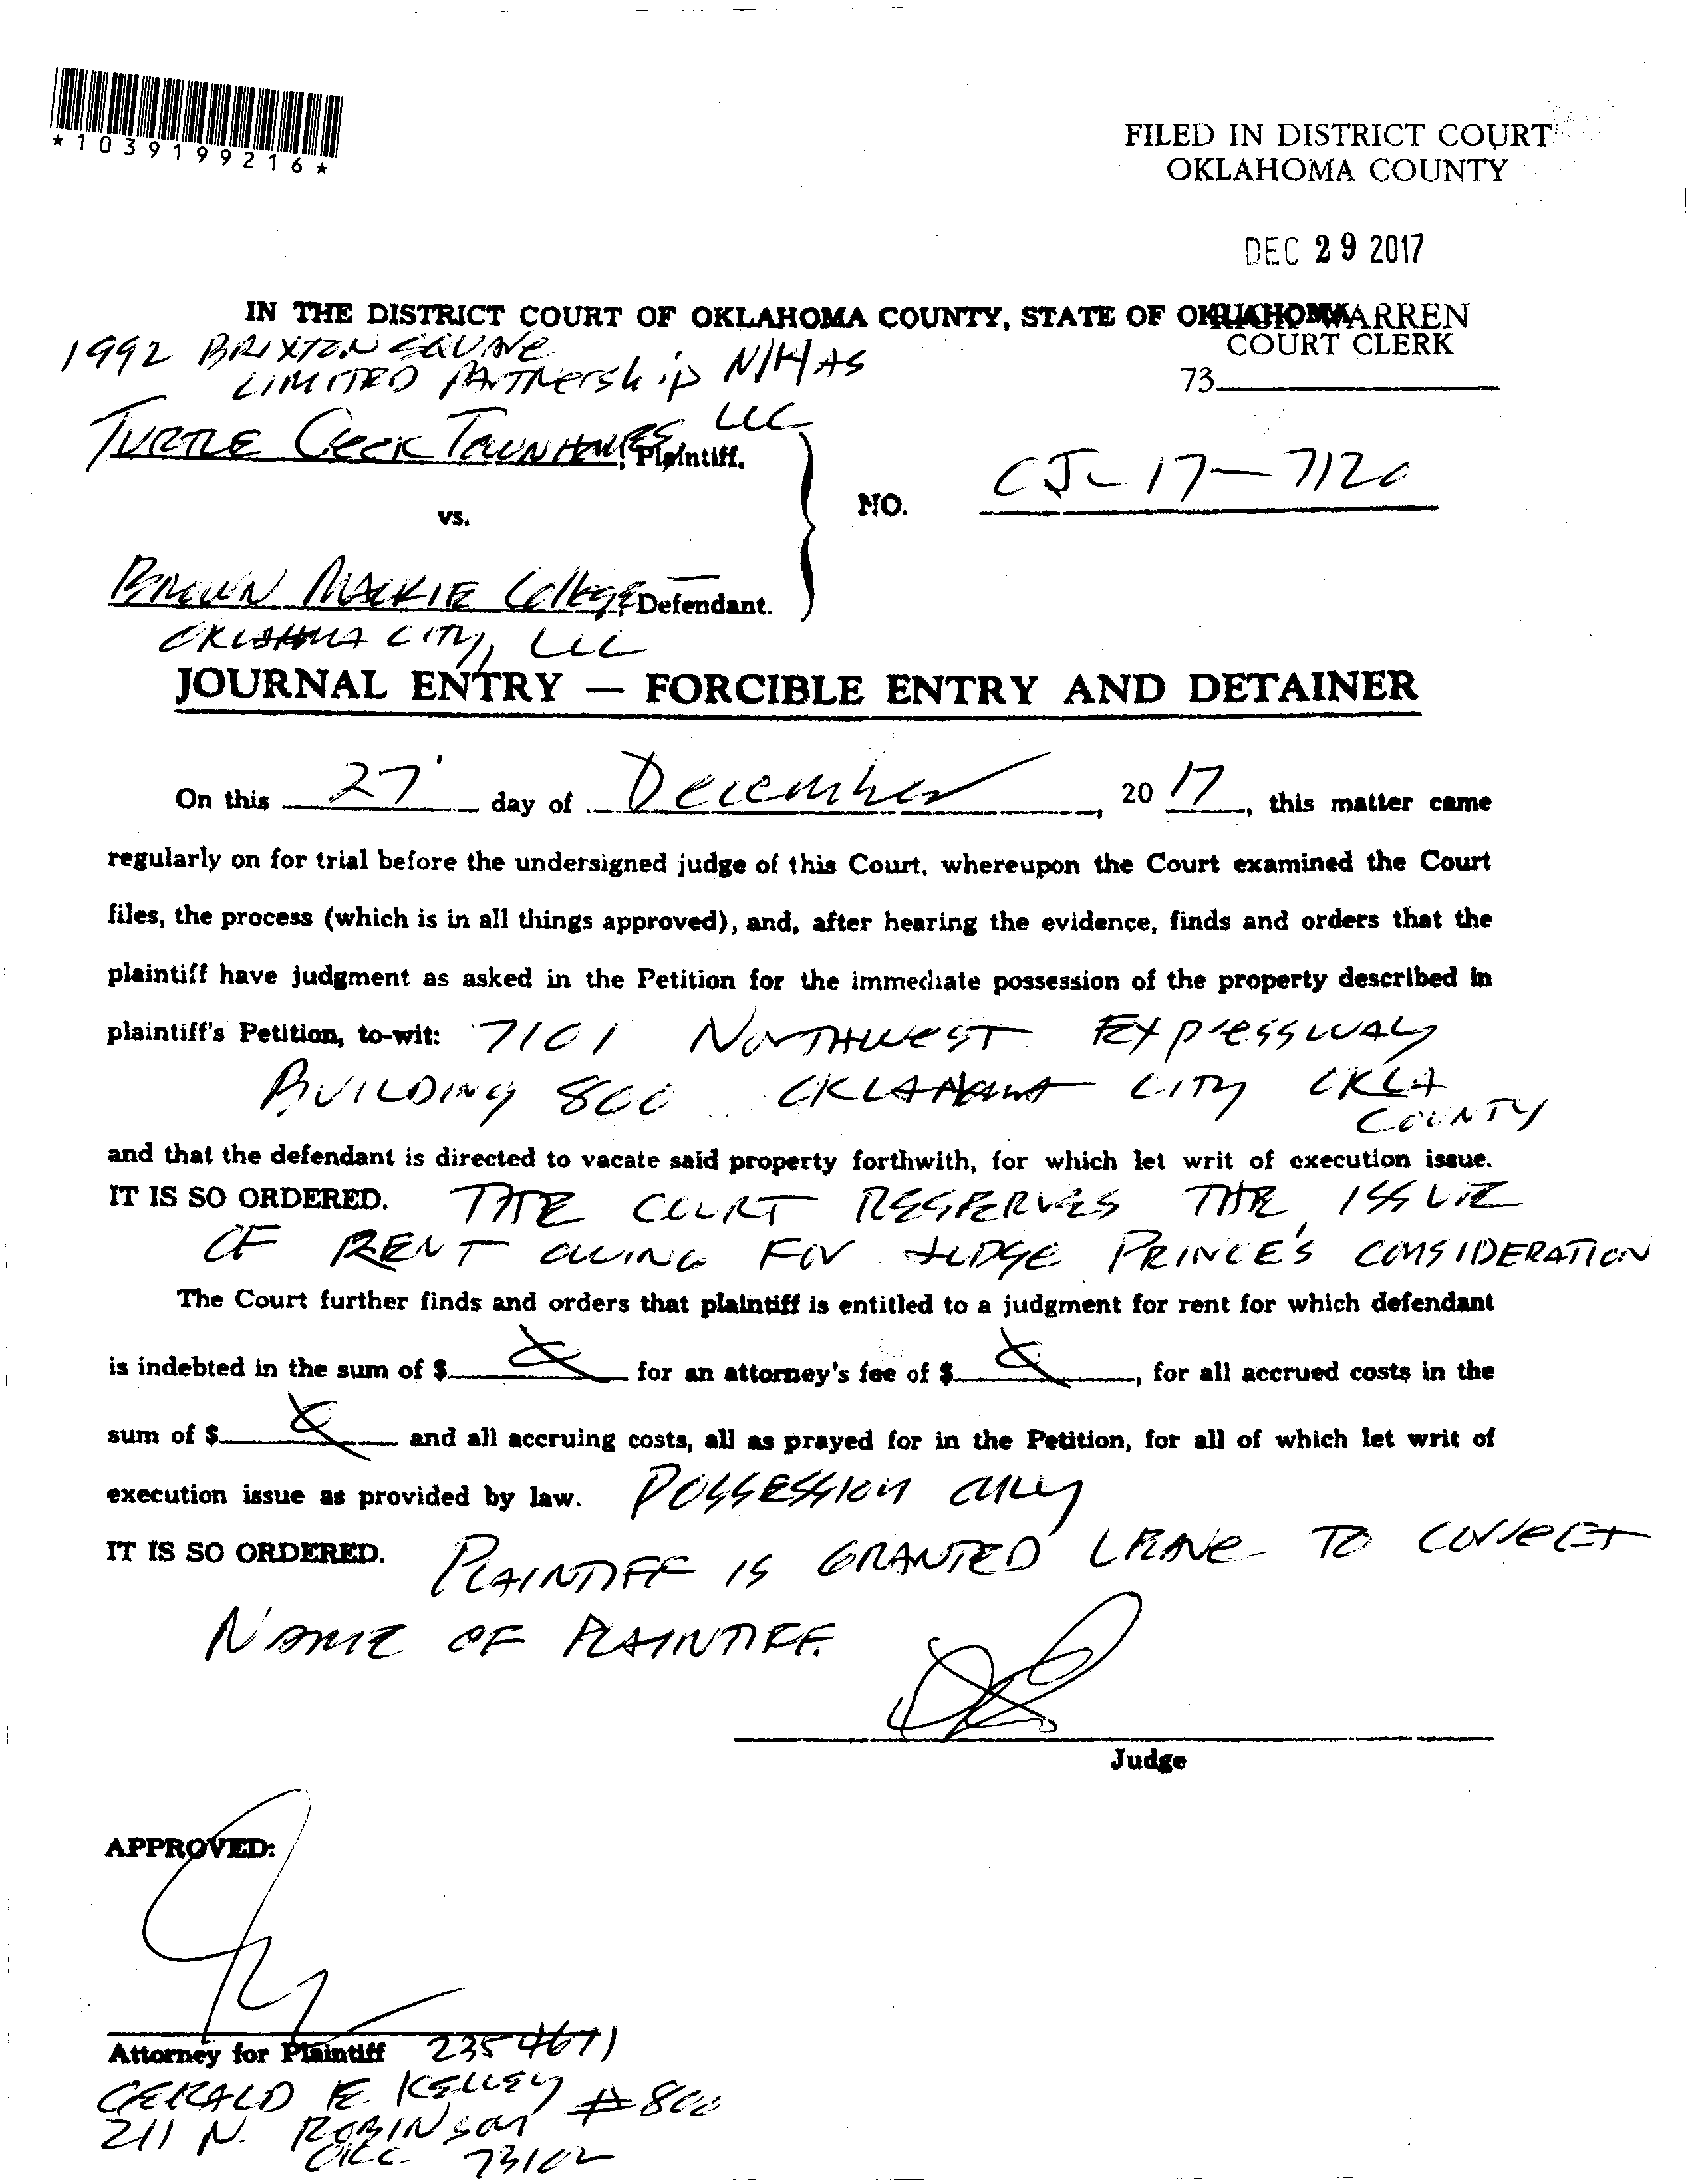 *1039199216*
FILED IN DISTRICT COURT
OKLAHOMA COUNTY
DEC 29 2017
IN THE DISTRICT COURT OF OKLAHOMA COUNTY, STATE OF OKLAHOMA
WARREN
COURT CLERK
73
1992 BRIXTON SQUARE
LIMITED PARTNERSHIP N/K/AS
TURTLE CREEK TOWNHOMES LLC
Plaintiff,
vs.
NO. CJ-17-7120
BROWN MACKIE College-
Defendant.
OKLAHOMA CITY, LLC
JOURNAL ENTRY — FORCIBLE ENTRY AND DETAINER
On this 27 day of December, 20 17, this matter came
regularly on for trial before the undersigned judge of this Court, whereupon the Court examined the Court
files, the process (which is in all things approved), and, after hearing the evidence, finds and orders that the
plaintiff have judgment as asked in the Petition for the immediate possession of the property described in
plaintiff's Petition, to-wit: 7101 NORTHWEST EXPRESSWAY
BUILDING 800 OKLAHOMA CITY OKLA
COUNTY
and that the defendant is directed to vacate said property forthwith, for which let writ of execution issue.
IT IS SO ORDERED. THE COURT RESERVES THE ISSUE
OF RENT OWING FOR JUDGE PRINCE'S CONSIDERATION
The Court further finds and orders that plaintiff is entitled to a judgment for rent for which defendant
is indebted in the sum of $ for an attorney's fee of $, for all accrued costs in the
sum of $ and all accruing costs, all as prayed for in the Petition, for all of which let writ of
execution issue as provided by law. POSSESSION ONLY
IT IS SO ORDERED. PLAINTIFF IS GRANTED LEAVE TO CORRECT
NAME OF PLAINTIFF.
Judge
APPROVED:
Attorney for Plaintiff 2354671
GERALD E. KELLEY
211 N. ROBINSON #800
OKC 73102